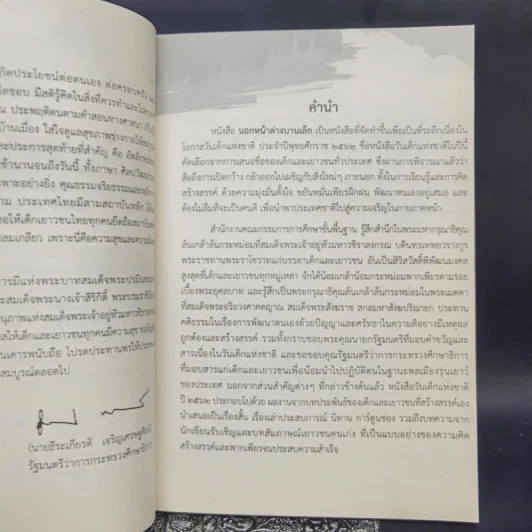 กิดประโยชน์ต่อตนเอง ต่อครอบครัว
ดชอบ มีสติรู้คิดในสิ่งที่ควรทำและไม่ควร
ณ ประพฤติตนตามคำสอนทางศาสนา
บ้านเมือง ใส่ใจดูแลสุขภาพร่างกายให้
และประการสุดท้ายที่สำคัญ คือ อัตลักษณ์
ช้านานจนถึงวันนี้ ทั้งภาษา ศิลปวัฒน
พาะอย่างยิ่ง คุณธรรมจริยธรรมและหลัก
าม ประเทศไทยมีสามสถาบันหลัก ได้
อให้เด็กเยาวชนไทยทุกคนยึดถือสถาบัน
ลมเกลียว เพราะนี่คือความสุขและความ
ารมีแห่งพระบาทสมเด็จพระปรมินทร
ะสมเด็จพระนางเจ้าสิริกิติ์ พระบรมราชิ
นุภาพแห่งสมเด็จพระเจ้าอยู่หัวมหาวชิรา
ลให้เด็กและเยาวชนทุกคนมีความสุข
นเคารพนับถือ โปรดประทานพรให้ประสบ
สมบูรณ์ตลอดไป
(นายธีระเกียรติ เจริญเศรษฐศิลป์)
รัฐมนตรีว่าการกระทรวงศึกษาธิการ
คำนำ
หนังสือ นอกหน้าต่างบานเล็ก เป็นหนังสือที่จัดทำขึ้นเพื่อเป็นที่ระลึกเนื่องใน
โอกาสวันเด็กแห่งชาติ ประจำปีพุทธศักราช ๒๕๖๒ ชื่อหนังสือวันเด็กแห่งชาติในปีนี้
คัดเลือกจากการเสนอชื่อของเด็กและเยาวชนทั่วประเทศ ซึ่งผ่านการพิจารณาแล้วว่า
สื่อถึงการเปิดกว้าง กล้าออกไปเผชิญกับสิ่งใหม่ๆ ภายนอก ทั้งในการเรียนรู้และการคิด
สร้างสรรค์ ด้วยความมุ่งมั่นตั้งใจ ขยันหมั่นเพียรฝึกฝน พัฒนาตนเองอยู่เสมอ และ
ต้องไม่ลืมที่จะเป็นคนดี เพื่อนำพาประเทศชาติไปสู่ความเจริญในภายภาคหน้า
สำนักงานคณะกรรมการการศึกษาขั้นพื้นฐาน รู้สึกสำนึกในพระมหากรุณาธิคุณ
ล้นเกล้าล้นกระหม่อมที่สมเด็จพระเจ้าอยู่หัวมหาวชิราลงกรณ บดินทรเทพยวรางกูร
พระราชทานพระราโชวาทแก่บรรดาเด็กและเยาวชน อันเป็นสิริสวัสดิ์พิพัฒนมงคล
สูงสุดที่เด็กและเยาวชนทุกหมู่เหล่า จักได้น้อมเกล้าน้อมกระหม่อมพาเพียรตามรอย
เบื้องพระยุคลบาท และรู้สึกเป็นพระกรุณาธิคุณล้นเกล้าล้นกระหม่อมในพระเมตตา
ที่สมเด็จพระอริยวงศาคตญาณ สมเด็จพระสังฆราช สกลมหาสังฆปริณายก ประทาน
คติธรรมในเรื่องการพัฒนาตนเองด้วยปัญญาและศรัทธาในความดีอย่างมีเหตุผล
ถูกต้องและสร้างสรรค์ รวมทั้งกราบขอบพระคุณนายกรัฐมนตรีที่มอบคำขวัญและ
สารเนื่องในวันเด็กแห่งชาติ และขอขอบคุณรัฐมนตรีว่าการกระทรวงศึกษาธิการ
ที่มอบสารแก่เด็กและเยาวชนเพื่อน้อมนำไปปฏิบัติตนในฐานะพลเมืองรุ่นเยาว์
ของประเทศ นอกจากส่วนสำคัญต่างๆ ที่กล่าวข้างต้นแล้ว หนังสือวันเด็กแห่งชาติ
ปี ๒๕๖๒ ประกอบไปด้วย ผลงานจากบทประพันธ์ของเด็กและเยาวชนที่สร้างสรรค์เอง
นำเสนอเป็นเรื่องสั้น เรื่องเล่าประสบการณ์ นิทาน การ์ตูนช่อง รวมถึงบทความจาก
นักเขียนรับเชิญและบทสัมภาษณ์เยาวชนคนเก่ง ที่เป็นแบบอย่างของความคิด
สร้างสรรค์และพากเพียรจนประสบความสำเร็จ